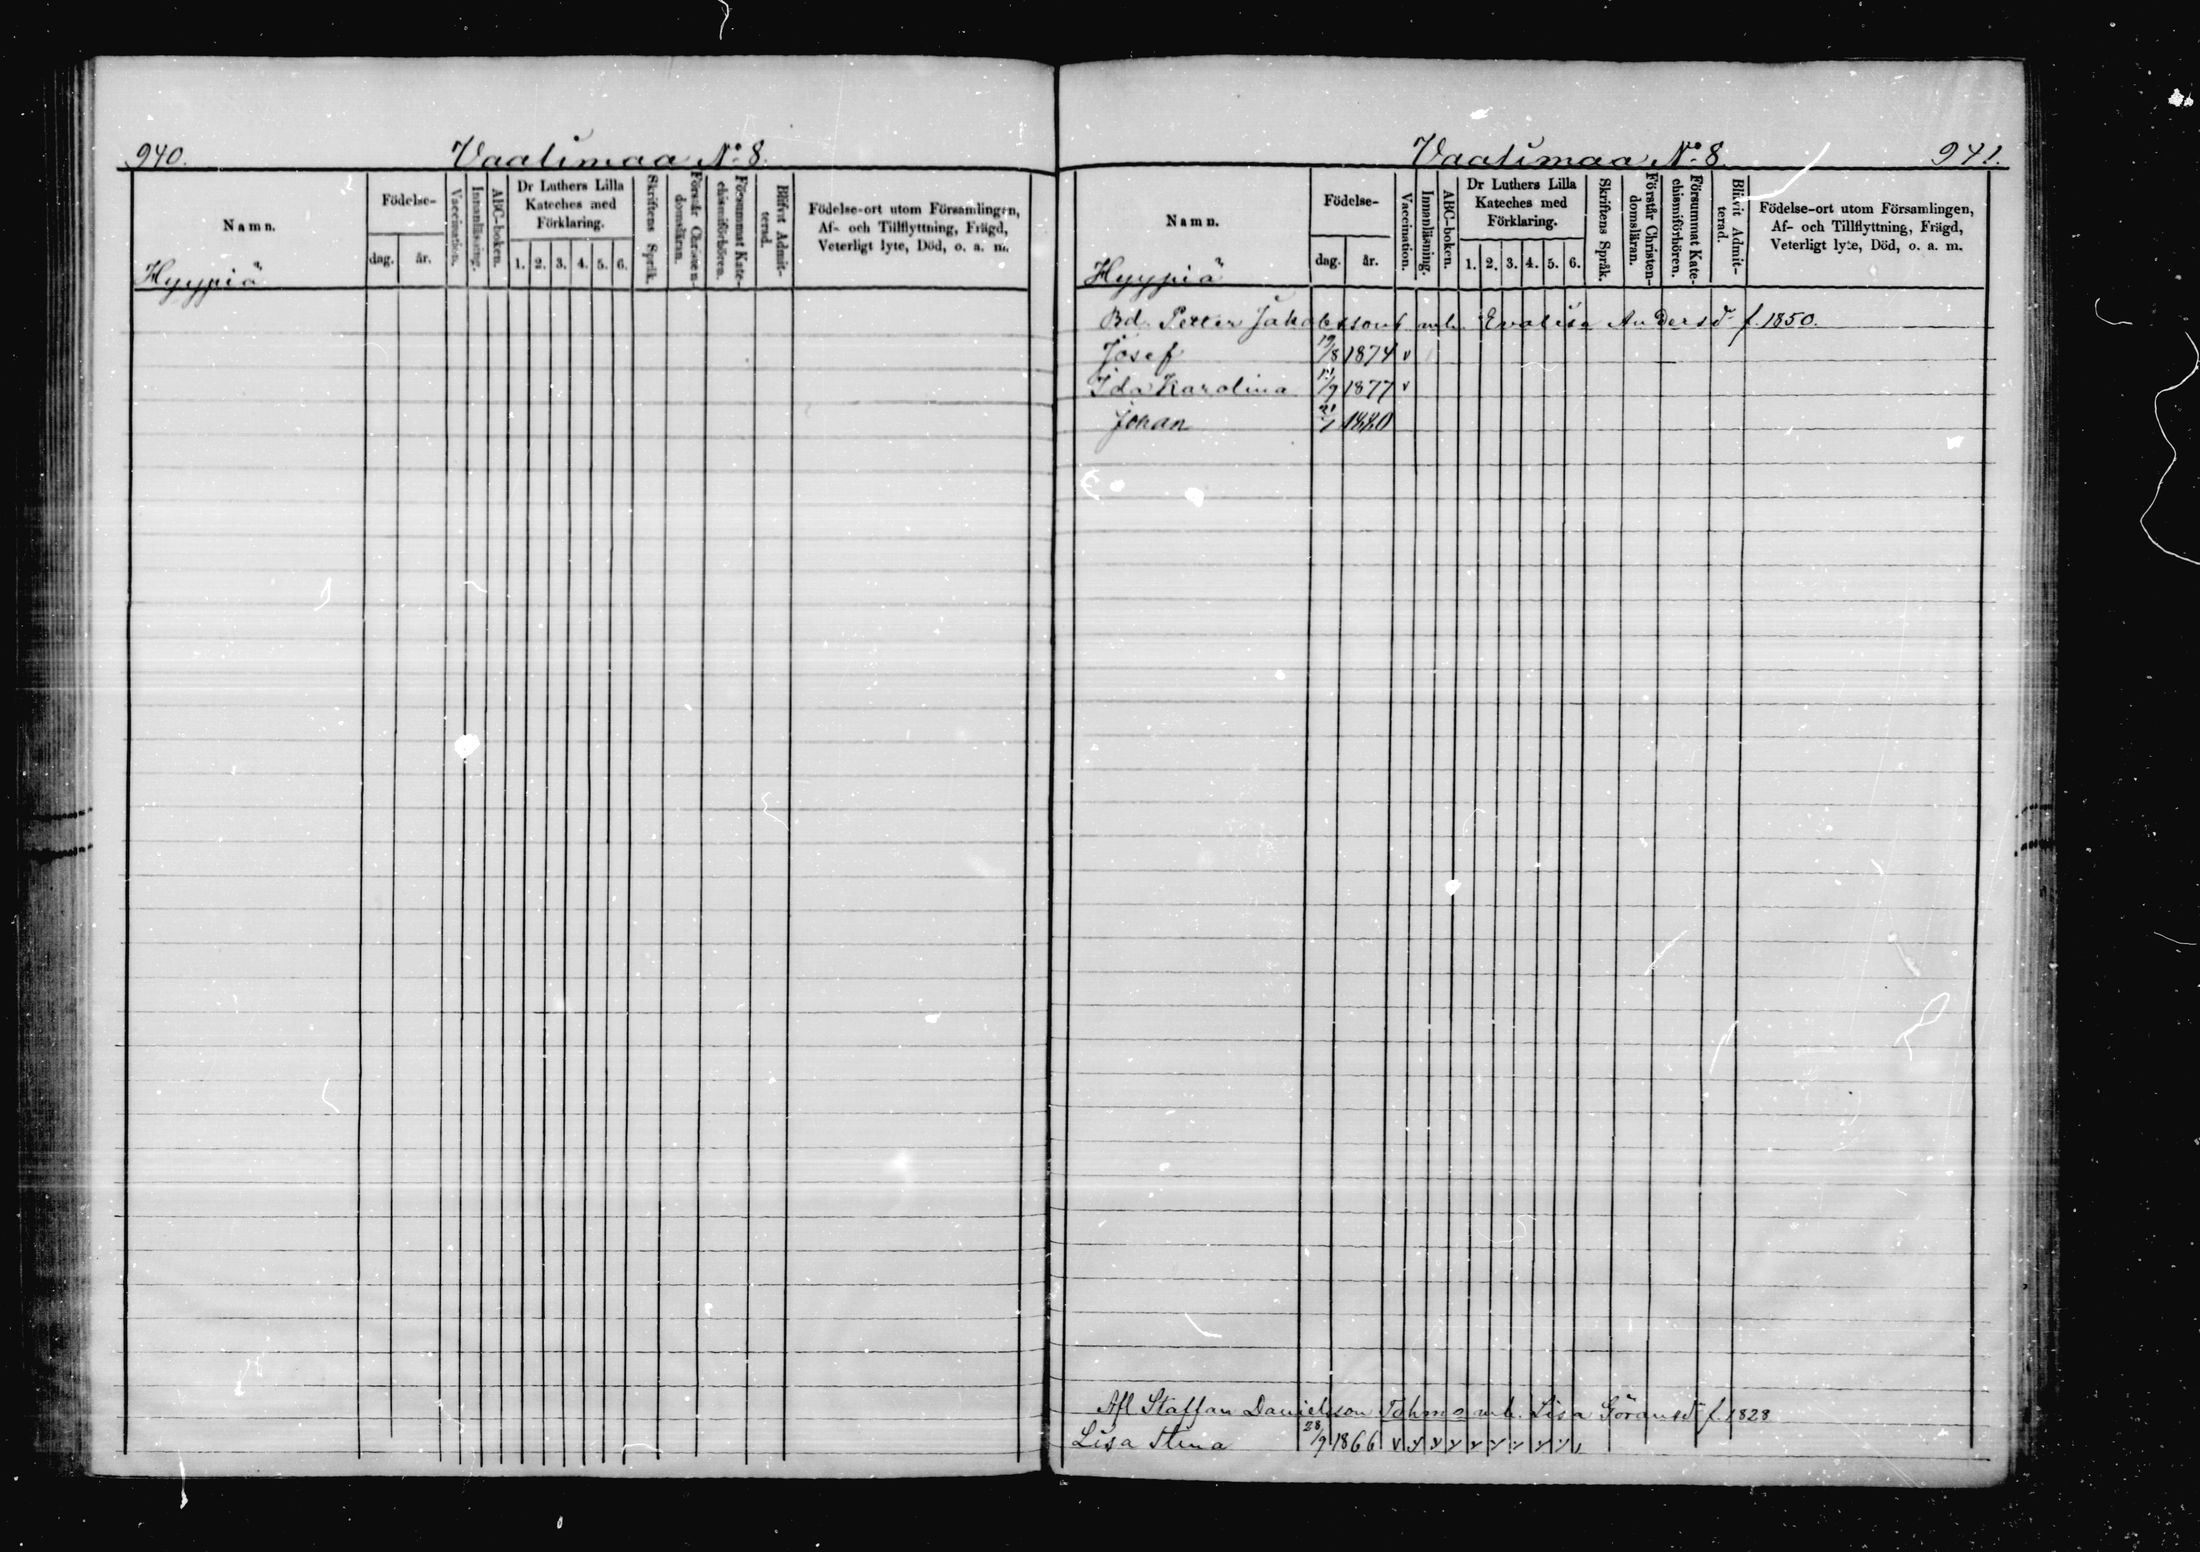 940.
Vaalimaa No 8.
Namn.
Födelse-
dag.
år.
Vaccination.
Innanläsning.
ABC-boken.
Dr Luthers Lilla
Kateches med
Förklaring.
1. 2. 3. 4. 5. 6.
Skriftens Språk.
Förstår Christen-
domsläran.
Försummat Kate-
chismiförhören.
Blifvit Admit-
terad.
Födelse-ort utom Församlingen,
Af- och Tillflyttning, Frägd,
Veterligt lyte, Död, o. a. m.
Hyypiä
Vaalimaa No 8.
941.
Namn.
Födelse-
dag.
år.
Vaccination.
Innanläsning.
ABC-boken.
Dr Luthers Lilla
Kateches med
Förklaring.
1. 2. 3. 4. 5. 6.
Skriftens Språk.
Förstår Christen-
domsläran.
Försummat Kate-
chismiförhören.
Blivit Admit-
terad.
Födelse-ort utom Församlingen,
Af- och Tillflyttning, Frägd,
Veterligt lyte, Död, o. a. m.
Hyypiä
Bd. Petter Jakobsson mh. Evalisa Andersd f. 1850.
Josef 19/8 1874 v
Ida Karolina 1877 v
Johan 1880
Afl Staffan Danielsson Tohmo mh. Lisa Göransd f. 1828
Lisa Stina 28/9 1866 v v v v v v v v v